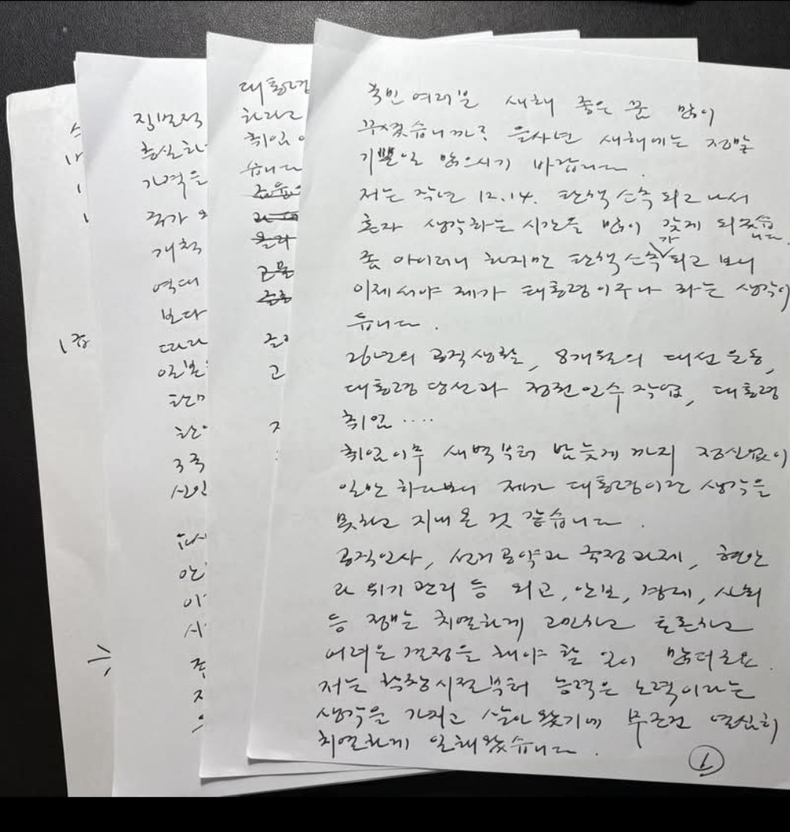 국민 여러분 새해 좋은 꿈 많이
꾸셨습니까? 을사년 새해에는 정말
기쁜일 많으시기 바랍니다.
저는 작년 12.14. 탄핵소추 되고 나서
혼자 생각하는 시간을 많이 갖게 되었습니다.
좀 아이러니 하지만 탄핵소추가 되고 보니
이제서야 제가 대통령이구나 하는 생각이
듭니다.
26년의 공직생활, 8개월의 대선 운동,
대통령 당선과 정권인수 작업, 대통령
취임 ....
취임이후 새벽부터 밤늦게 까지 정신없이
일만 하다보니 제가 대통령이란 생각을
못하고 지내온 것 같습니다.
공직인사, 선거공약과 국정과제, 현안
과 위기 관리 등 외교, 안보, 경제, 사회
등 정말 치열하게 고민하고 토론하고
어려운 결정을 해야 할 일이 많더군요.
저는 학창시절부터 능력은 노력이라는
생각을 가지고 살아왔기에 무조건 열심히
치열하게 일해왔습니다.
1
대통령
하라고
취임
습니다
고
징벌적
충실한
가격은
국가
개척
역대
보다
따라
3국